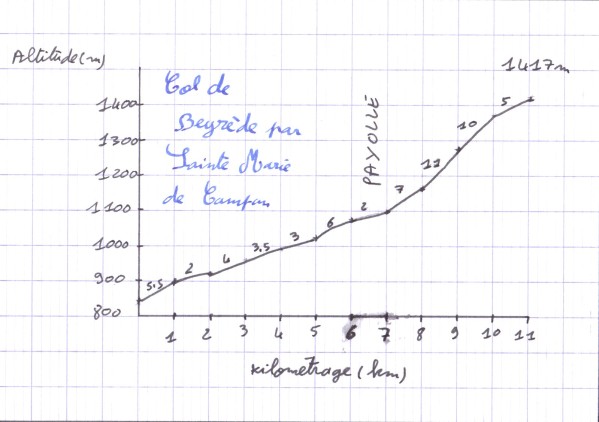 Altitude (m)
1417m
Col de
Beyrède par
Sainte Marie
de Campan
PAYOLLE
1400
1300
1200
1100
1000
900
800
5.5
2
4
3.5
3
6
2
7
11
10
5
1 2 3 4 5 6 7 8 9 10 11
kilométrage (km)